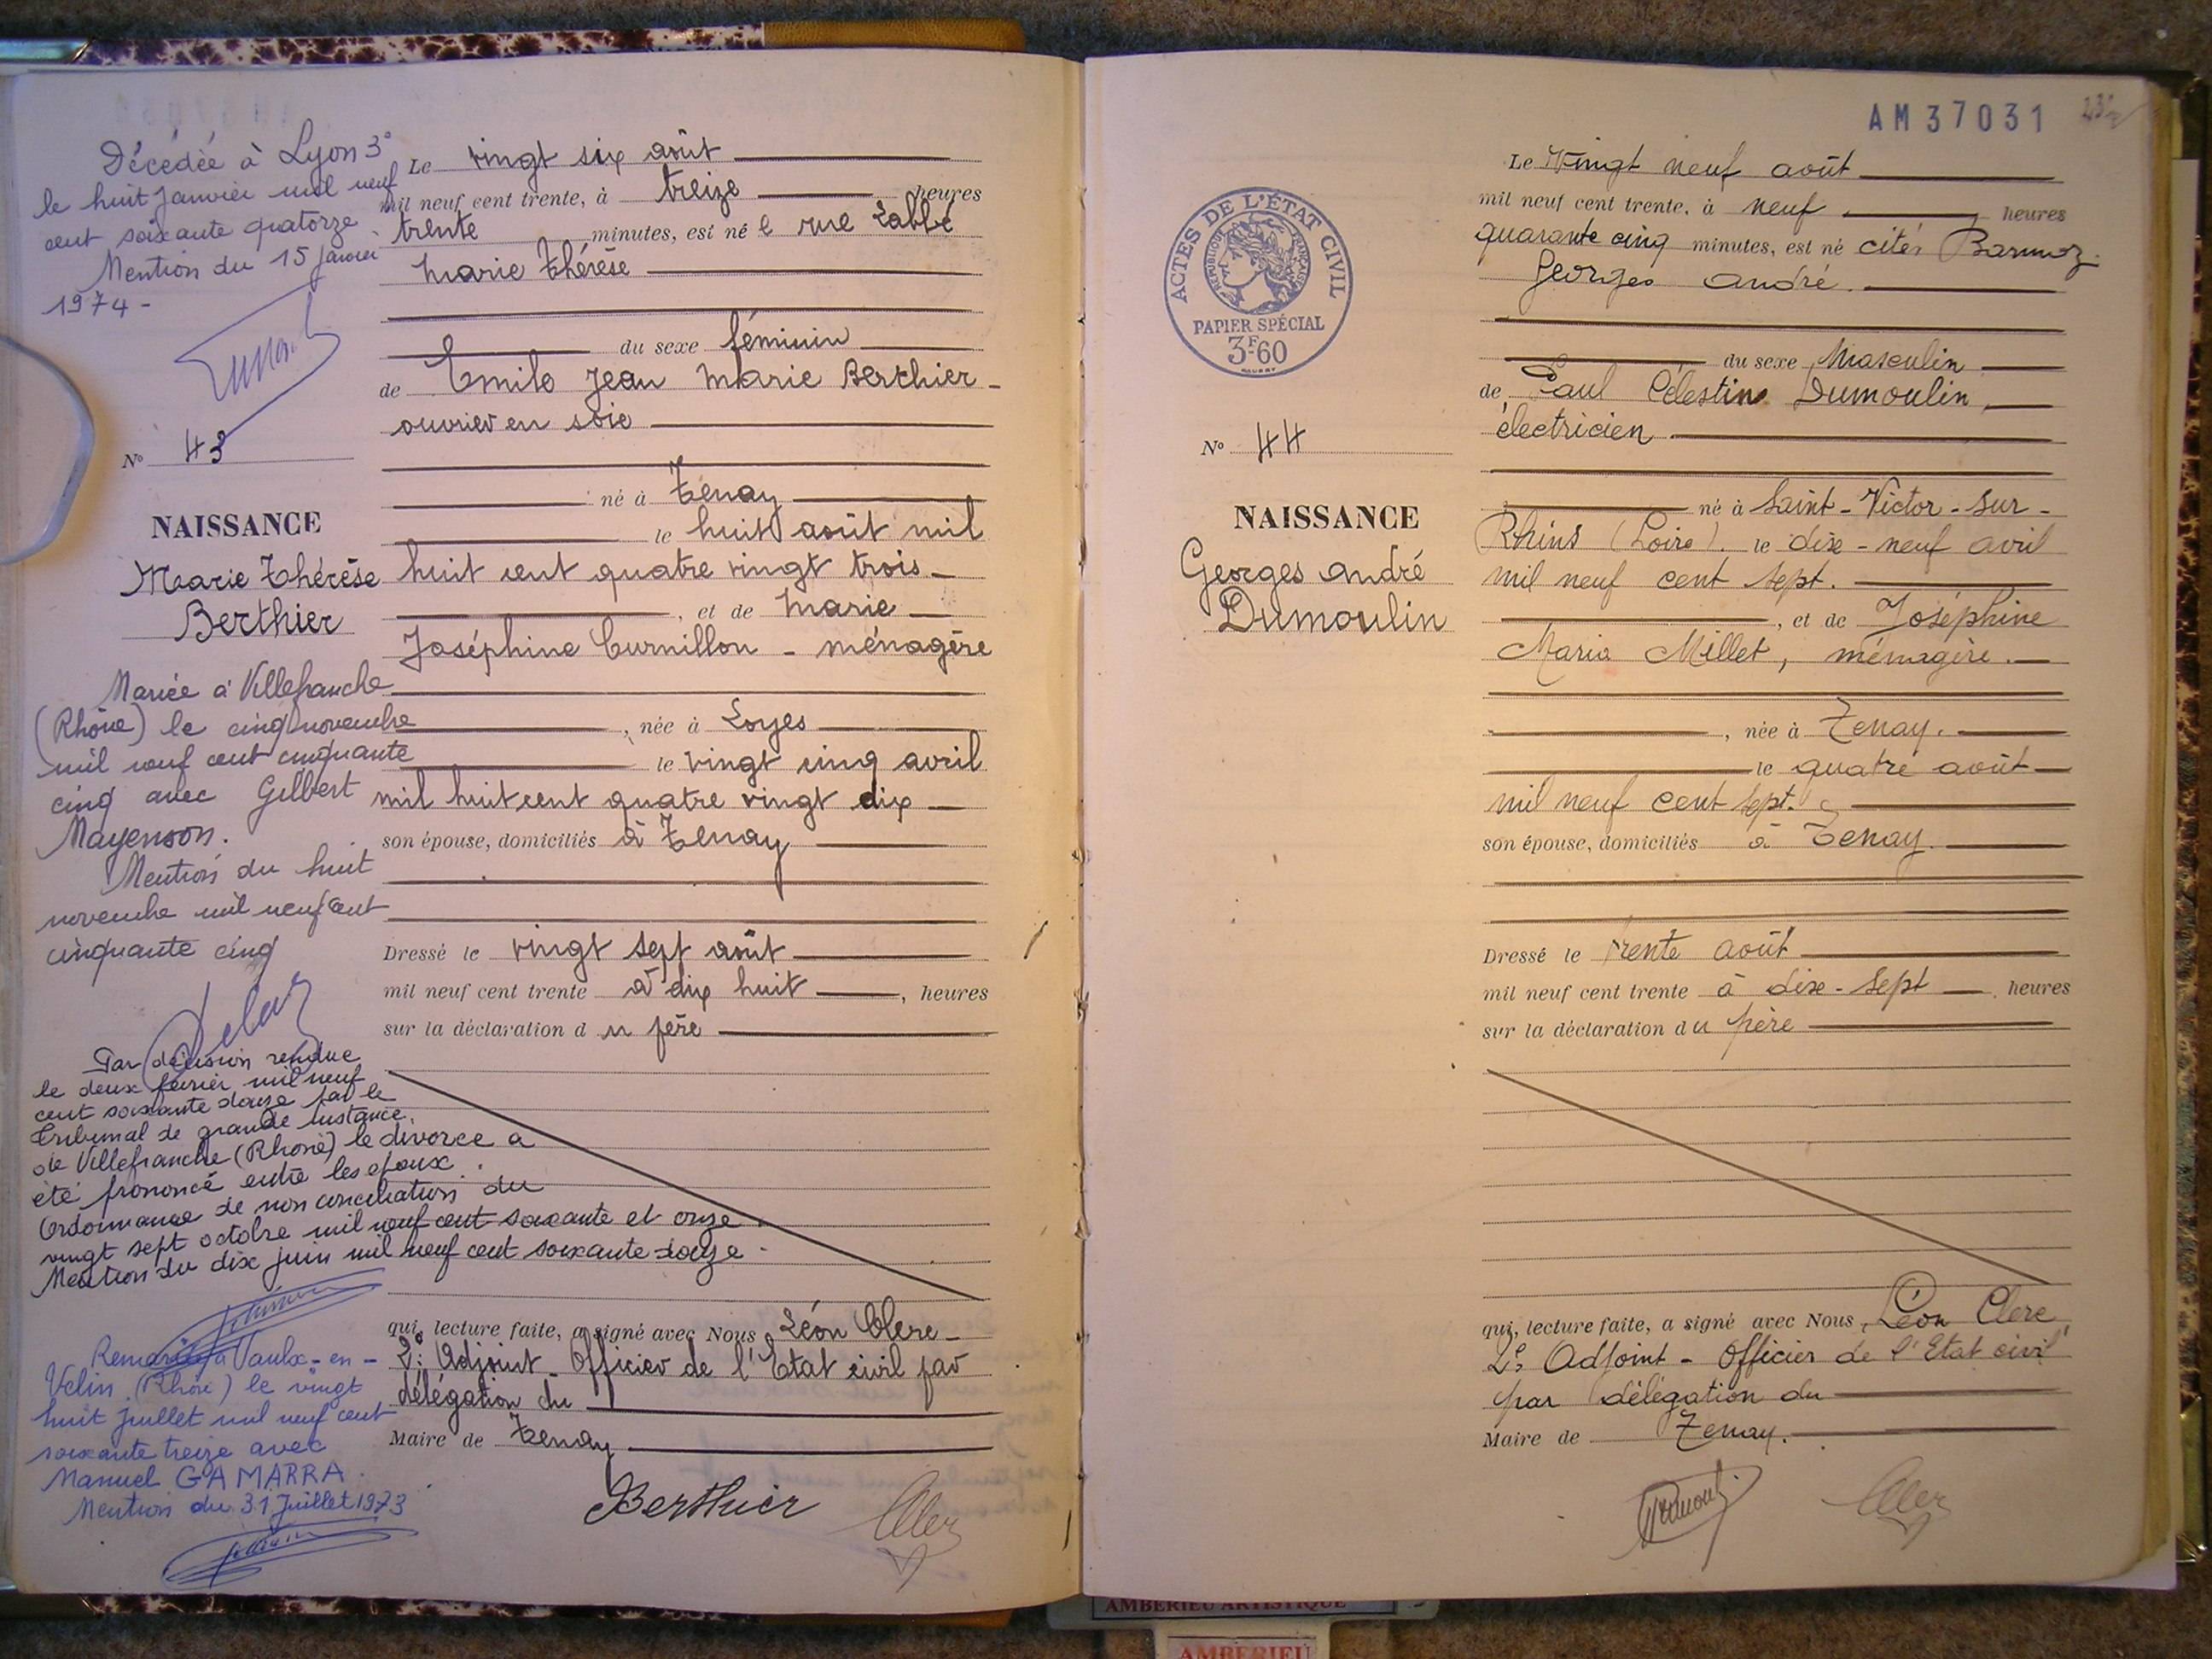 Décédée à Lyon 3°
le huit Janvier mil neuf
cent soixante quatorze
Mention du 15 Janvier
1974 -
N° 43
NAISSANCE
Marie Thérèse
Berthier
Mariée à Villefranche
(Rhône) le cinq novembre
mil neuf cent cinquante
cinq avec Gilbert
Mayenson.
Mention du huit
novembre mil neuf cent
cinquante cinq
Par décision rendue
le deux février mil neuf
cent soixante douze par le
Tribunal de grande instance
de Villefranche (Rhône) le divorce a
été prononcé entre les époux.
Ordonnance de non conciliation du
vingt sept octobre mil neuf cent soixante et onze.
Mention du dix juin mil neuf cent soixante douze.
Remariée à Vaulx-en-
Velin (Rhône) le vingt
huit juillet mil neuf cent
soixante treize avec
Manuel GAMARRA.
Mention du 31 Juillet 1973
Le vingt six août
mil neuf cent trente, à treize heures
trente minutes, est né e rue Labbé
Marie Thérèse
du sexe féminin
de Emile Jean Marie Berthier -
ouvrier en soie
né à Tenay
le huit août mil
huit cent quatre vingt trois -
, et de Marie
Joséphine Curnillon - ménagère
, née à Loyes
le vingt cinq avril
mil huit cent quatre vingt dix
son épouse, domiciliés à Tenay
Dressé le vingt sept août
mil neuf cent trente à dix huit , heures
sur la déclaration d u père
qui, lecture faite, a signé avec Nous Léon Clerc -
2e Adjoint - Officier de l'Etat civil par
délégation du
Maire de Tenay
Berthier
Clerc
AM37031
ACTES DE L'ÉTAT CIVIL
RÉPUBLIQUE FRANÇAISE
PAPIER SPÉCIAL
3F60
N° 44
NAISSANCE
Georges André
Dumoulin
Le Vingt neuf août
mil neuf cent trente, à neuf heures
quarante cinq minutes, est né cités
Georges André.
du sexe Masculin
de Paul Célestin Dumoulin,
électricien
né à Saint-Victor-sur-
Rhins (Loire). le dix-neuf avril
mil neuf cent sept.
, et de Joséphine
Maria Millet, ménagère.
, née à Tenay.
le quatre août
mil neuf cent sept.
son épouse, domiciliés à Tenay.
Dressé le trente août
mil neuf cent trente à dix-sept heures
sur la déclaration du père
qui, lecture faite, a signé avec Nous, Léon Clerc
2e Adjoint - Officier de l'Etat civil
par délégation du
Maire de Tenay.
Clerc
AMBERIEU ARTISTIQUE
AMBERIEU